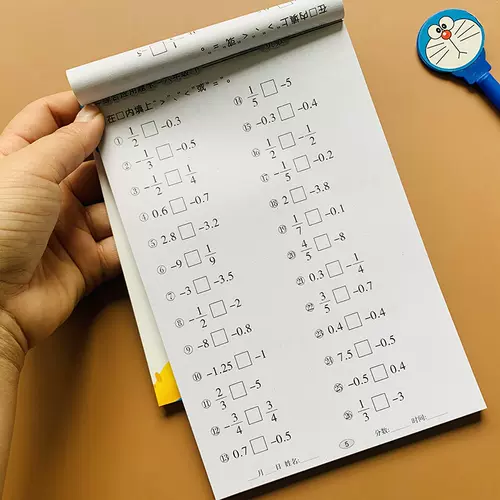 在□内填上“>”、“<”或“=”。
① 1/2 □ -0.3
② -1/3 □ -0.5
③ -1/2 □ 1/4
④ 0.6 □ -0.7
⑤ 2.8 □ -3.2
⑥ -9 □ 1/9
⑦ -3 □ -3.5
⑧ -1/2 □ -2
⑨ -8 □ -0.8
⑩ -1.25 □ -1
⑪ 2/3 □ -5
⑫ -3/4 □ 3/4
⑬ 0.7 □ -0.5
⑭ 1/5 □ -5
⑮ -0.3 □ -0.4
⑯ 1/2 □ -1/2
⑰ -1/5 □ -0.2
⑱ 2 □ -3.8
⑲ 1/7 □ -0.1
⑳ 4/5 □ -8
㉑ 0.3 □ -1/4
㉒ 3/5 □ -0.7
㉓ 0.4 □ -0.4
㉔ 7.5 □ -0.5
㉕ -0.5 □ 0.4
㉖ 1/3 □ -3
月 日 姓名: 5 分数: 时间:
在□内填上“>”、“<”或“=”。